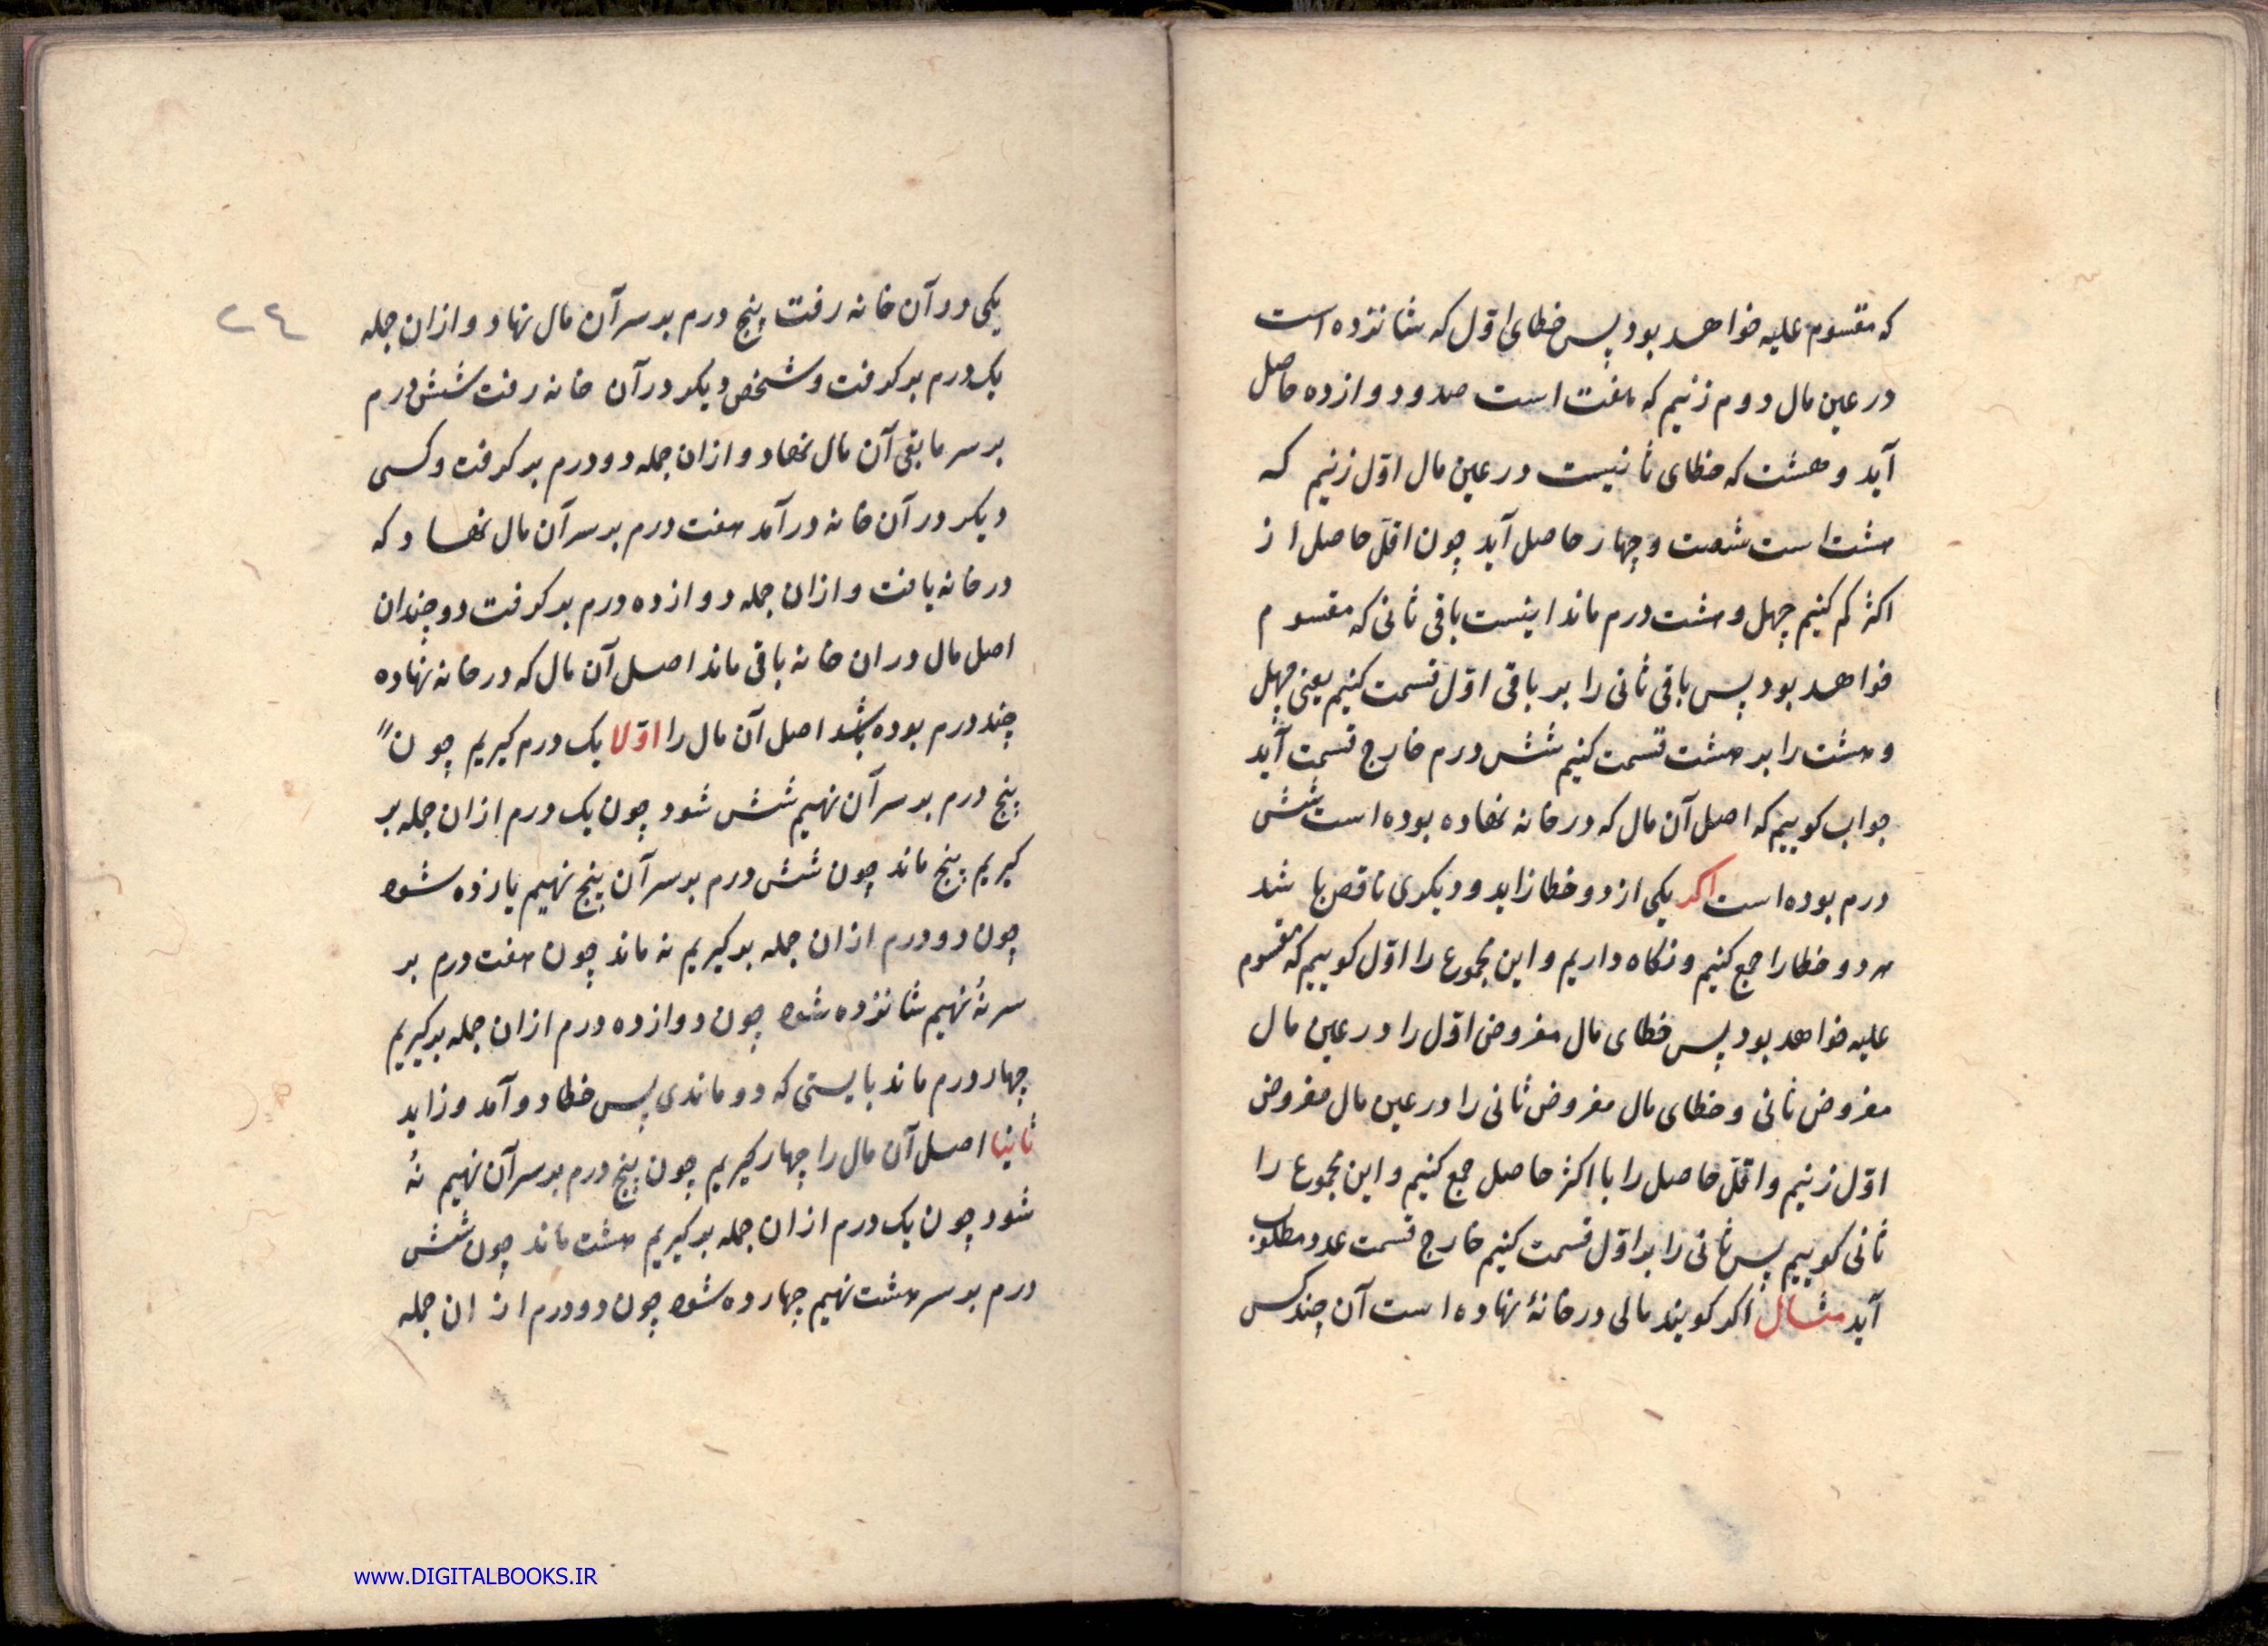 که مقسوم علیه خواهد بود پس خطای اوّل که شانزده است
در عین مال دوم زنیم که هفت است صد و دوازده حاصل
آید و هشت که خطای ثانیست در عین مال اوّل زنیم که
هشت است شصت و چهار حاصل آید چون اقلّ حاصل از
اکثر کم کنیم چهل و هشت درم ماند اینست باقی ثانی که مقسوم
خواهد بود پس باقی ثانی را بر باقی اوّل قسمت کنیم یعنی چهل
و هشت را بر هشت قسمت کنیم شش درم خارج قسمت آید
جواب کوییم که اصل آن مال که در خانه نهاده بوده است شش
درم بوده است اکر یکی از دو خطا زاید و دیکری ناقص باشد
هر دو خطا را جمع کنیم و نکاه داریم و این مجموع را اوّل کوییم که مقسوم
علیه خواهد بود پس خطای مال مفروض اوّل را در عین مال
مفروض ثانی و خطای مال مفروض ثانی را در عین مال مفروض
اوّل زنیم و اقلّ حاصل را با اکثر حاصل جمع کنیم و این مجموع را
ثانی کوییم پس ثانی را بر اوّل قسمت کنیم خارج قسمت عدد مطلوب
آید مثال اکر کویند مالی در خانهٔ نهاده است آن چند کس
۲۴
یکی در آن خانه رفت پنج درم بر سر آن مال نهاد و ازان جمله
یک درم بر کرفت و شخص دیکر در آن خانه رفت شش درم
بر سر ما بقی آن مال نهاد و ازان جمله دو درم بر کرفت و کسی
دیکر در آن خانه در آمد هفت درم بر سر آن مال نهاد که
در خانه یافت و ازان جمله دوازده درم بر کرفت دو چندان
اصل مال دران خانه باقی ماند اصل آن مال که در خانه نهاده
چند درم بوده باشد اصل آن مال را اوّلا یک درم کیریم چون
پنج درم بر سر آن نهیم شش شود چون یک درم ازان جمله بر
کیریم پنج ماند چون شش درم بر سر آن پنج نهیم یازده شود
چون دو درم ازان جمله بر کیریم نه ماند چون هفت درم بر
سر نُه نهیم شانزده شود چون دوازده درم ازان جمله بر کیریم
چهار درم ماند بایستی که دو ماندی پس خطا دو آمد و زاید
ثانیا اصل آن مال را چهار کیریم چون پنج درم بر سر آن نهیم نُه
شود چون یک درم ازان جمله بر کیریم هشت ماند چون شش
درم بر سر هشت نهیم چهارده شود چون دو درم از ان جمله
www.DIGITALBOOKS.IR